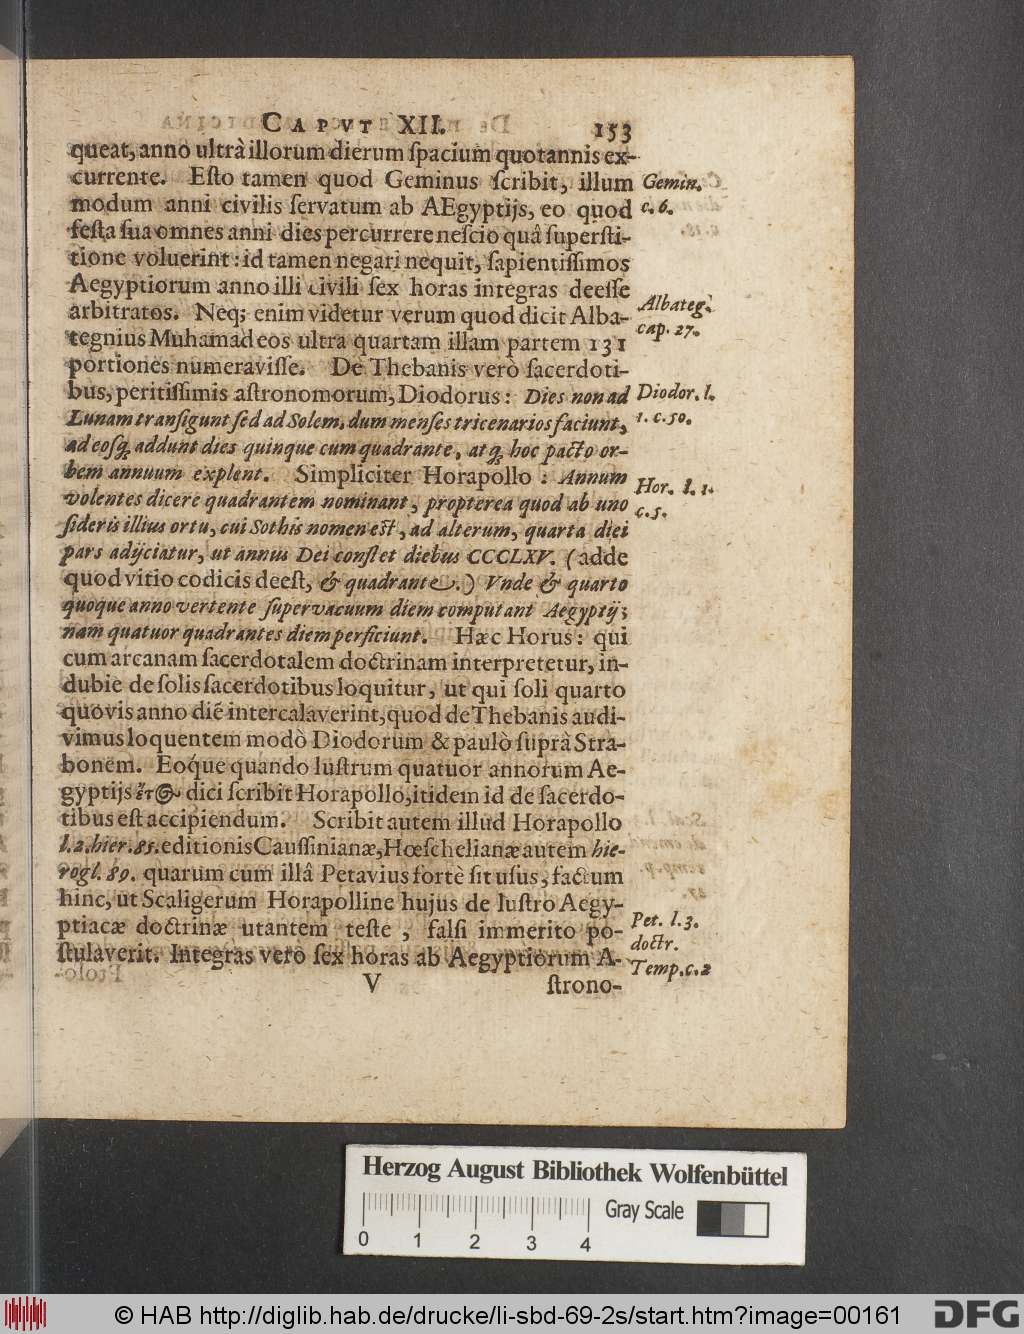 CAPVT XII. 153
queat, anno ultrà illorum dierum ſpacium quotannis ex-
currente. Eſto tamen quod Geminus ſcribit, illum
Gemin.
modum anni civilis ſervatum ab AEgyptijs, eo quod
c. 6.
feſta ſua omnes anni dies percurrere neſcio quâ ſuperſti-
tione voluerint: id tamen negari nequit, ſapientiſſimos
Aegyptiorum anno illi civili ſex horas integras deeſſe
arbitratos. Neq; enim videtur verum quod dicit Alba-
Albateg.
cap. 27.
tegnius Muhamad eos ultra quartam illam partem 131
portiones numeraviſſe. De Thebanis verò ſacerdoti-
bus, peritiſſimis aſtronomorum, Diodorus: Dies non ad
Diodor. l.
Lunam tranſigunt ſed ad Solem, dum menſes tricenarios faciunt,
1. c. 50.
ad eoſq; addunt dies quinque cum quadrante, atq; hoc pacto or-
bem annuum explent. Simpliciter Horapollo: Annum
Hor. l. 1.
volentes dicere quadrantem nominant, propterea quod ab uno
c. 5.
ſideris illius ortu, cui Sothis nomen eſt, ad alterum, quarta diei
pars adijciatur, ut annus Dei conſtet diebus CCCLXV. (adde
quod vitio codicis deeſt, & quadrante.) Vnde & quarto
quoque anno vertente ſupervacuum diem computant Aegyptij;
nam quatuor quadrantes diem perficiunt. Hæc Horus: qui
cum arcanam ſacerdotalem doctrinam interpretetur, in-
dubie de ſolis ſacerdotibus loquitur, ut qui ſoli quarto
quovis anno diẽ intercalaverint, quod de Thebanis audi-
vimus loquentem modò Diodorum & paulò ſuprà Stra-
bonem. Eoq́ue quando luſtrum quatuor annorum Ae-
gyptijs ἔτ dici ſcribit Horapollo, itidem id de ſacerdo-
tibus eſt accipiendum. Scribit autem illud Horapollo
l. 2. hier. 85. editionis Cauſſinianæ, Hœſchelianæ autem hie-
rogl. 89. quarum cum illâ Petavius fortè ſit uſus, factum
hinc, ut Scaligerum Horapolline hujus de luſtro Aegy-
ptiacæ doctrinæ utantem teſte, falſi immerito po-
Pet. l. 3.
doctr.
ſtulaverit. Integras verò ſex horas ab Aegyptiorum A-
Temp. c. 2
V ſtrono-
Herzog August Bibliothek Wolfenbüttel
Gray Scale
0 1 2 3 4
© HAB http://diglib.hab.de/drucke/li-sbd-69-2s/start.htm?image=00161
DFG